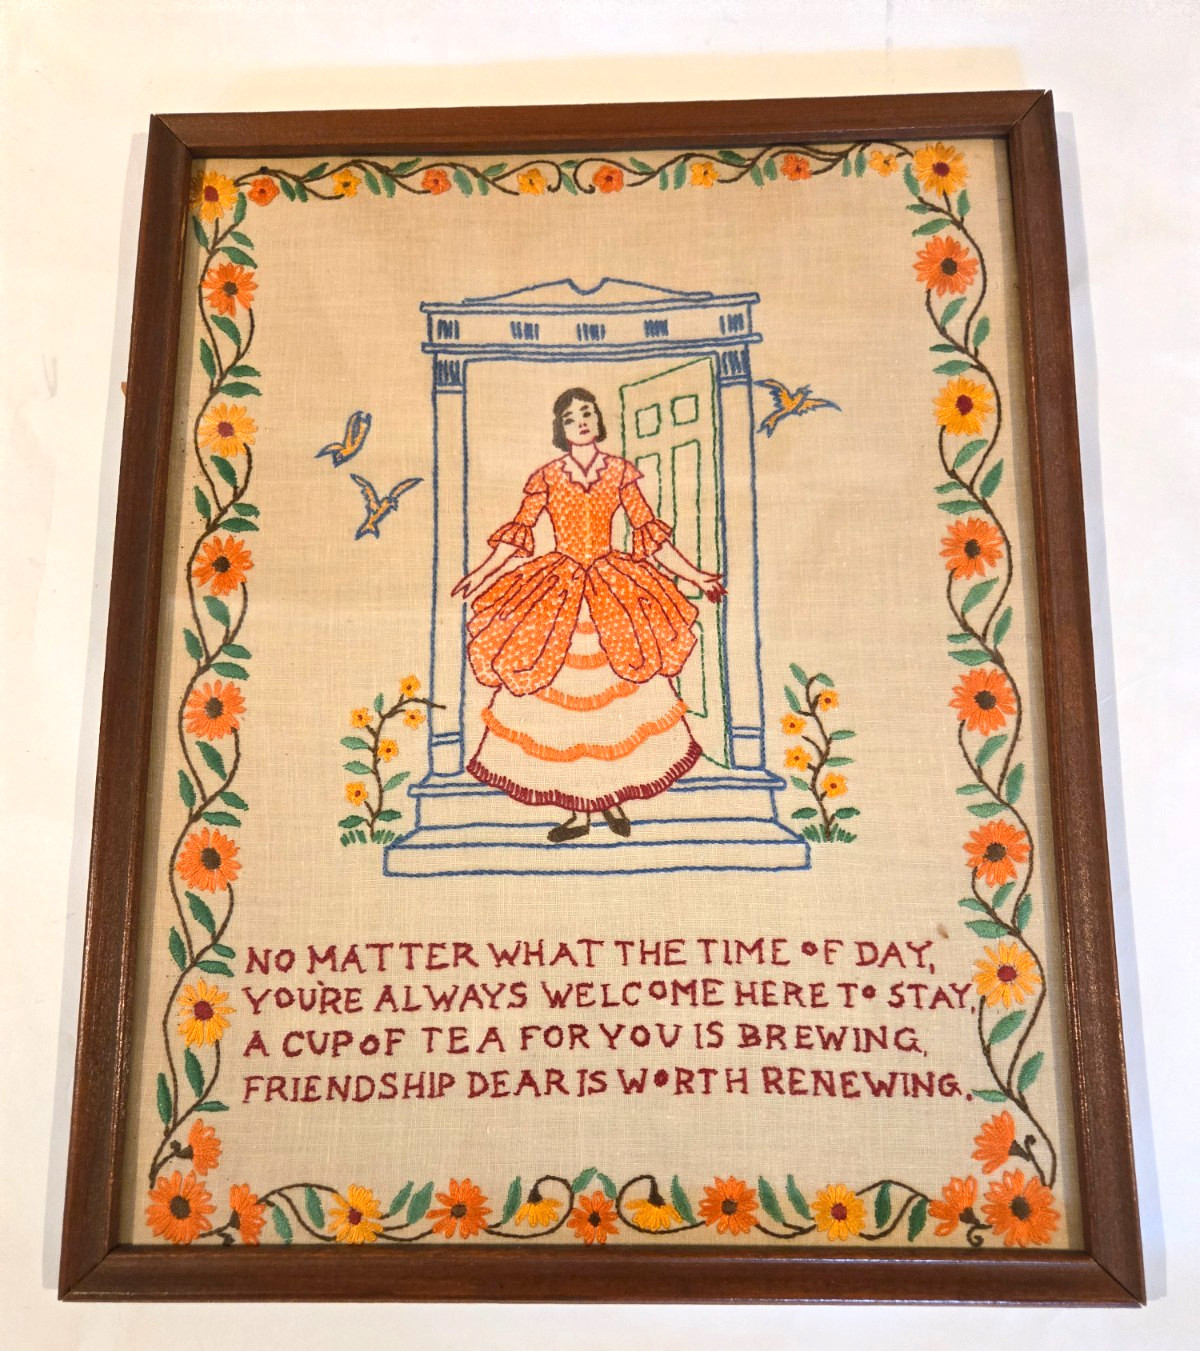 NO MATTER WHAT THE TIME OF DAY,
YOU'RE ALWAYS WELCOME HERE TO STAY,
A CUP OF TEA FOR YOU IS BREWING,
FRIENDSHIP DEAR IS WORTH RENEWING.